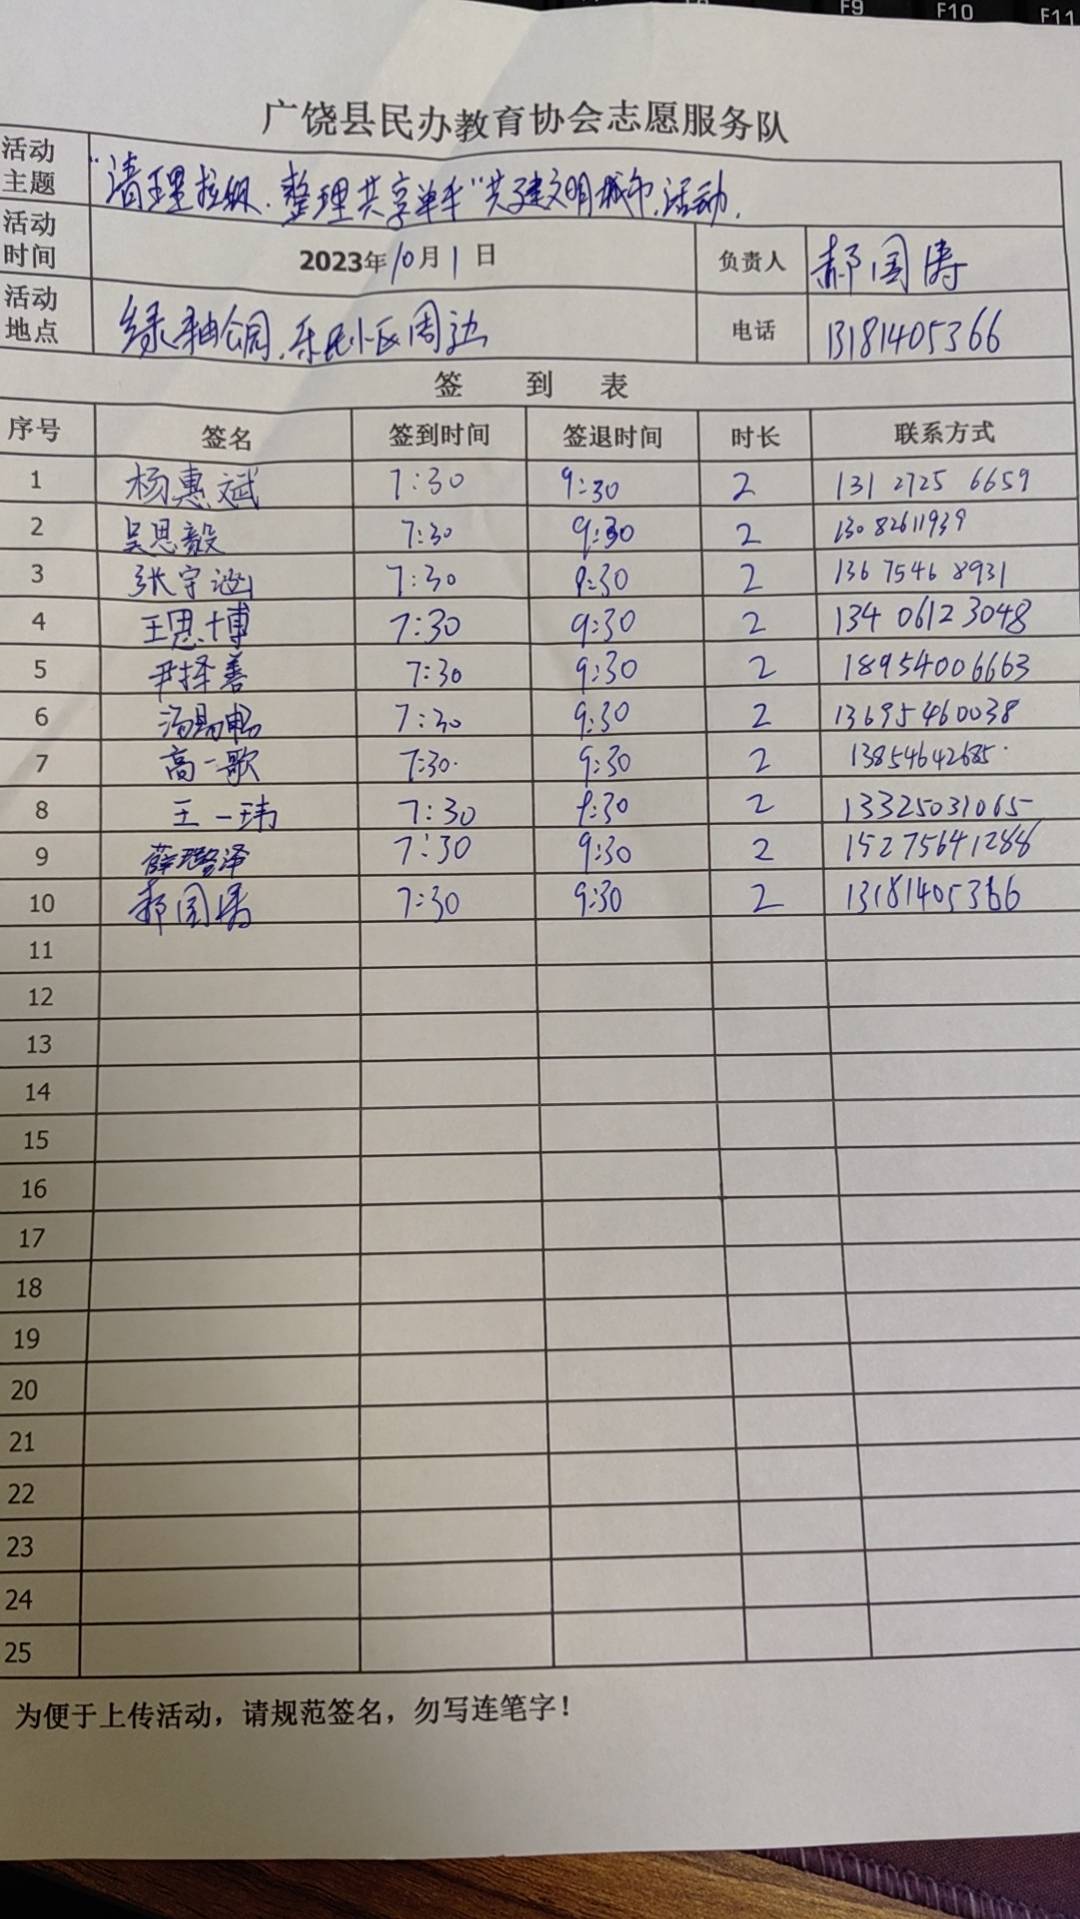 F9 F10 F11
广饶县民办教育协会志愿服务队
活动主题 "清理垃圾、整理共享单车"共建文明城市活动.
活动时间 2023年10月1日 负责人 郝国涛
活动地点 绿轴公园、乐民小区周边 电话 13181405366
签 到 表
序号 签名 签到时间 签退时间 时长 联系方式
1 杨惠斌 7:30 9:30 2 131 2725 6659
2 吴思毅 7:30 9:30 2 13082611939
3 张宇涵 7:30 9:30 2 136 7546 8931
4 王思博 7:30 9:30 2 134 0612 3048
5 尹择善 7:30 9:30 2 18954006663
6 汤易畅 7:30 9:30 2 13695460038
7 高一歌 7:30 9:30 2 13854642685
8 王一玮 7:30 9:30 2 13325031065
9 薛璐泽 7:30 9:30 2 15275641288
10 郝国涛 7:30 9:30 2 13181405366
11
12
13
14
15
16
17
18
19
20
21
22
23
24
25
为便于上传活动，请规范签名，勿写连笔字！